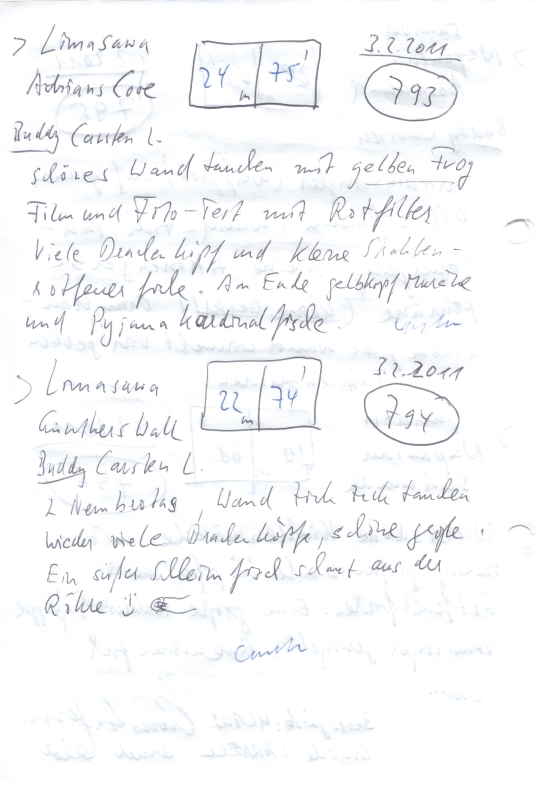 > Limasawa 24 m 75' 3.2.2011
Adrians Cove 793
Buddy Carsten L.
schönes Wand tauchen mit gelben Frog
Film und Foto-Test mit Rotfilter
Viele Drachenköpf und kleine Strahlen-
rotfeuerfische. Am Ende gelbkopf Muräne
und Pyjama Kardinalfische.
> Limasawa 22 m 74' 3.2.2011
Günthers Wall 794
Buddy Carsten L.
2 Nembrotas, Wand zick zick tauchen
wieder viele Drachenköpfe, schöne große.
Ein süßer Schleimfisch schaut aus der
Röhre